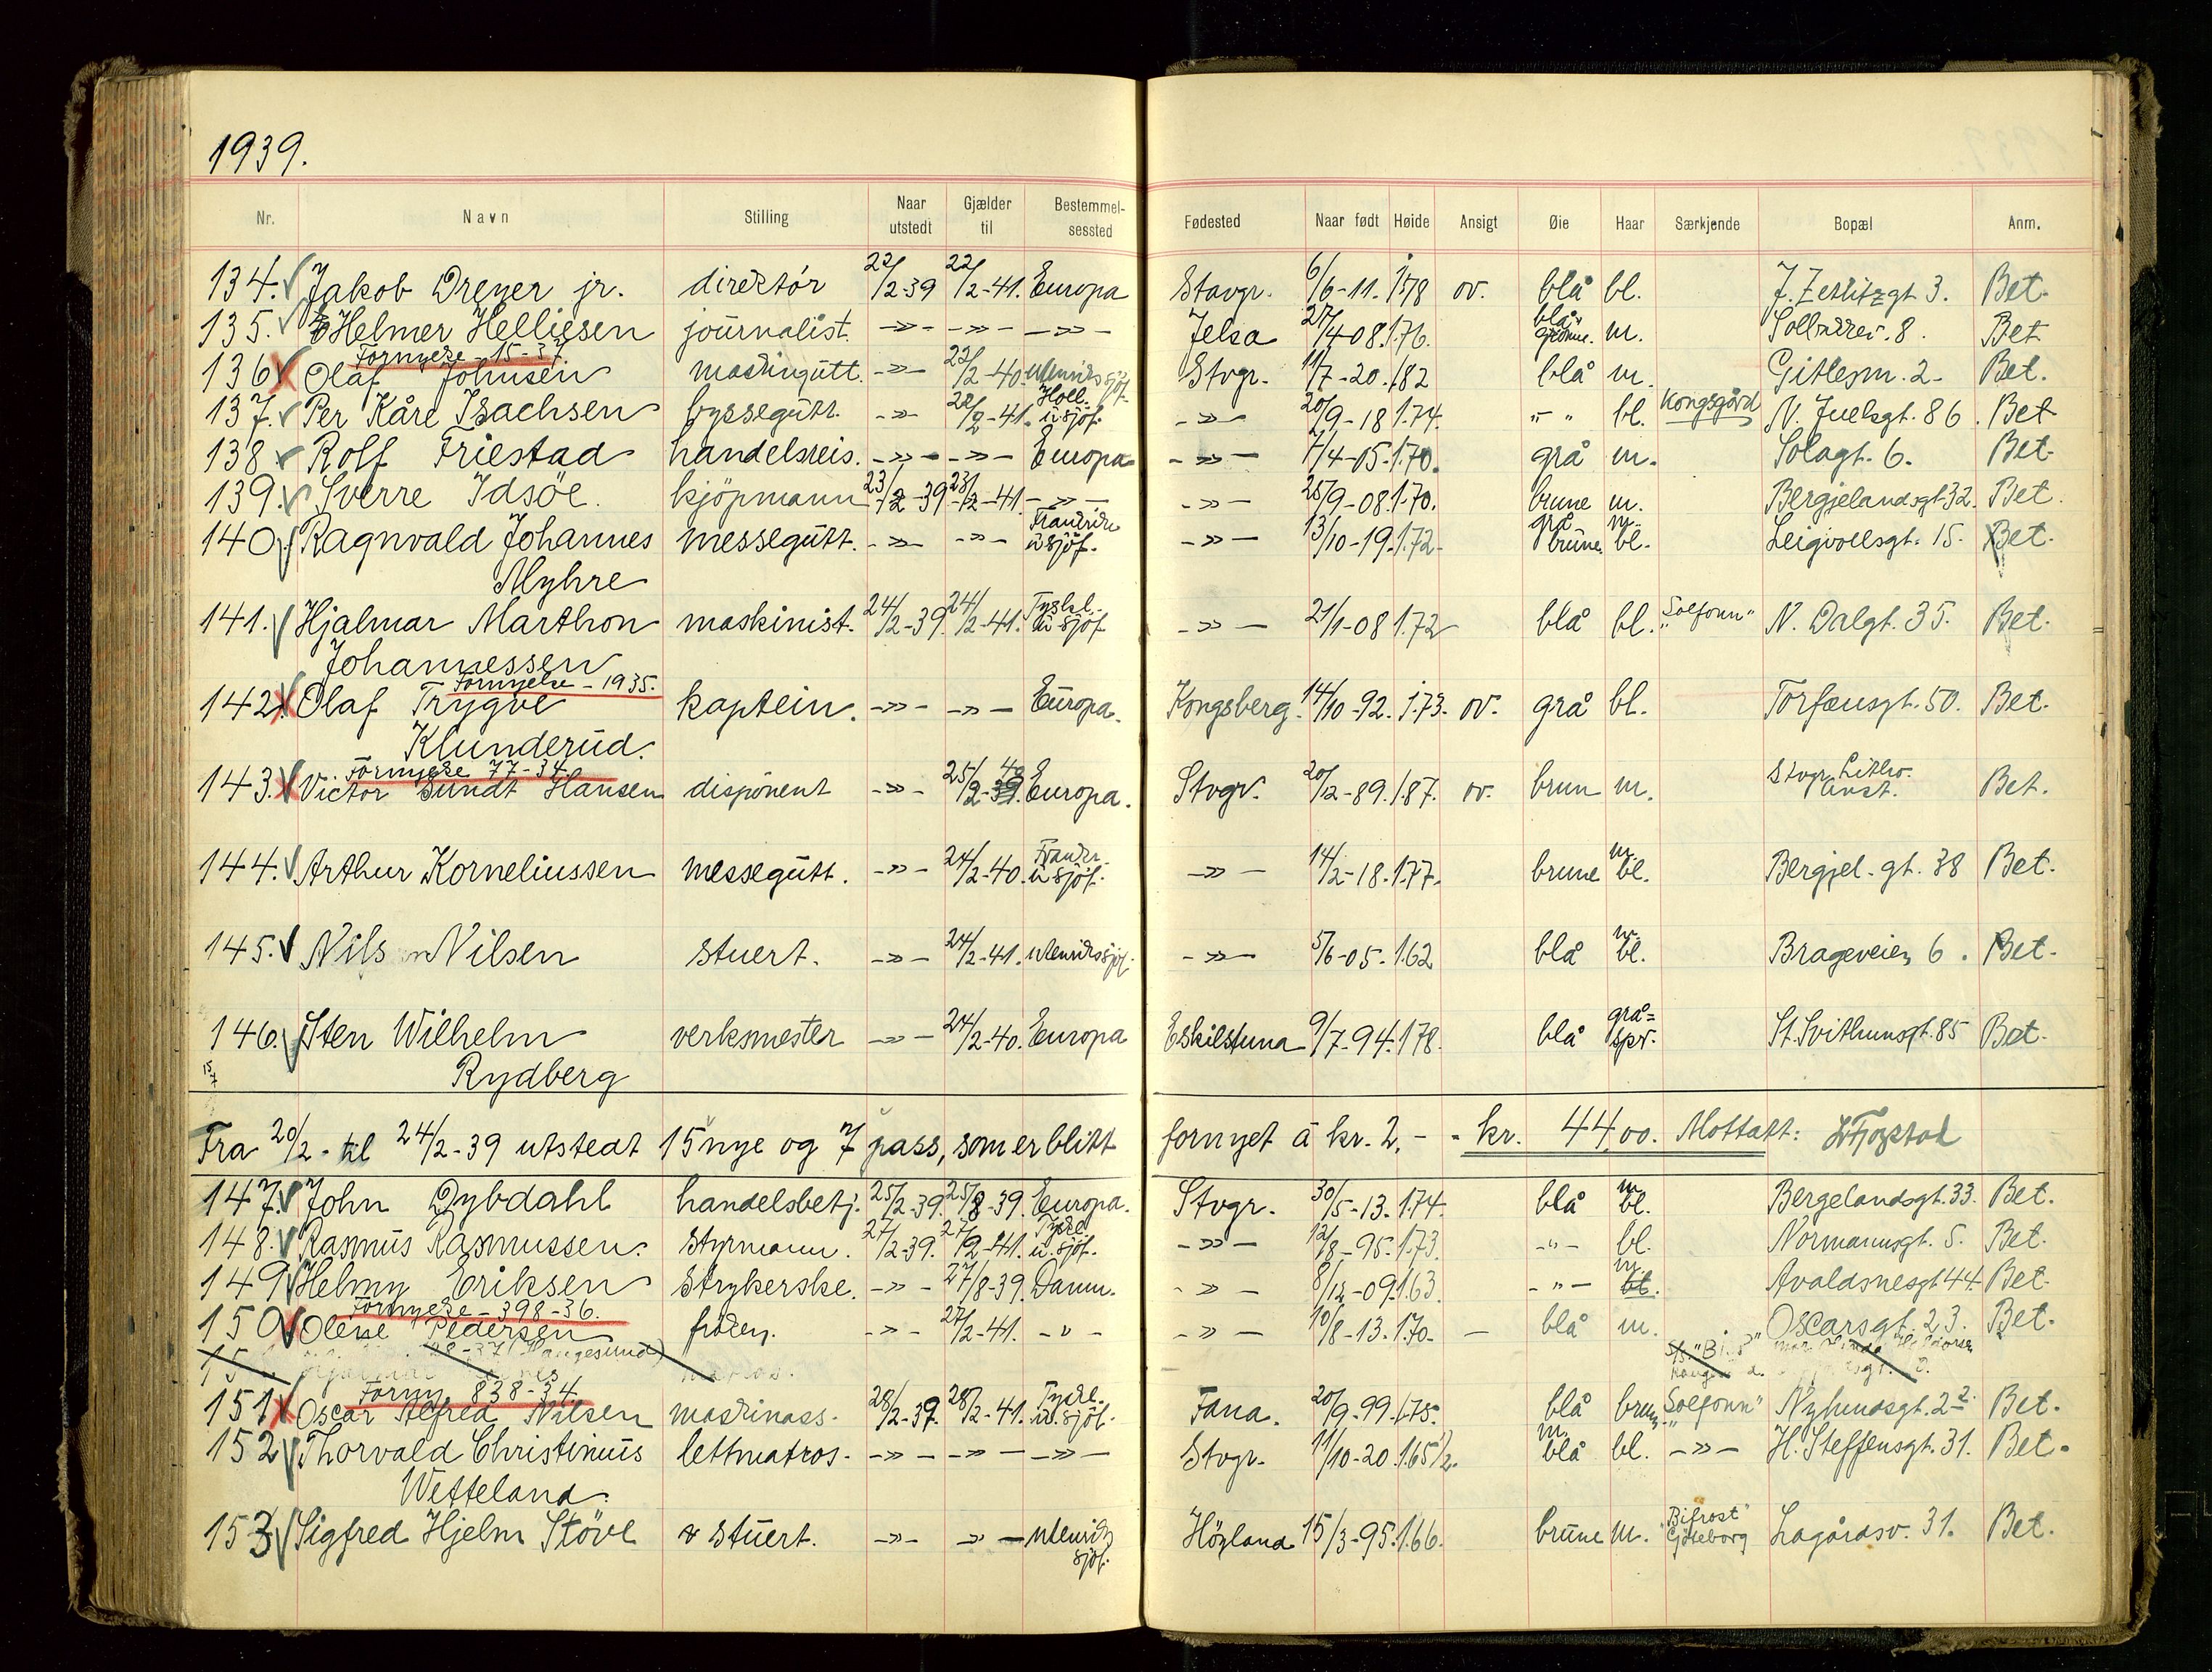 1939.
Nr. Navn Stilling Naar utstedt Gjælder til Bestemmelsessted Fødested Naar født Høide Ansigt Øie Haar Særkjende Bopæl Anm.
134. Jakob Dreyer jr. direktör 22/2-39 22/2-41. Europa Stavgr. 6/6-11. 1.78 ov. blå bl. J. Zetlitzgt. 3. Bet.
135. Helmer Helliesen journalist. -»- -»- -»- Jelsa 27/4-08. 1.76. blå m. 8. Bet
Fornyelse - 15-37.
136 Olaf Johnsen maskingutt. -»- 22/2-40. utenriks sjöf. Stvgr. 11/7-20. 1.82 blå m. Gitlesm. 2. Bet.
137. Per Kåre Isachsen byssegutt. -»- 22/2-41. Holl. u sjöf. -»- 20/9-18 1.74. -"- bl. Kongsgård N. Juelsgt. 86. Bet
138. Rolf Friestad handelsreis. -»- -»- Europa -»- 7/4-05. 1.70. grå m. Solagt. 6. Bet.
139. Sverre Idsöe. kjöpmann 23/2-39 23/2-41. -»- -»- 25/9-08. 1.70. brune m. Bergjelandsgt. 32. Bet.
140. Ragnvald Johannes messegutt. -»- -»- Frankrike u sjöf. -»- 13/10-19. 1.72. grå brune. m. bl. 15. Bet.
Myhre
141. Hjalmar Marthon maskinist. 24/2-39. 24/2-41. Tyskl. u sjöf -»- 21/1-08 1.72 blå bl. "Solfonn" N. Dalgt. 35. Bet.
Johannessen
Fornyelse - 1935.
142. Olaf Trygve kaptein. -»- -»- Europa. Kongsberg. 14/10-92. 1.73. ov. grå bl. Torfæusgt. 50. Bet.
Klunderud.
Fornyelse 77-34.
143. Victor Sundt Hansen disponent -»- 25/2-40 Europa. Stvgr. 20/12-89. 1.87. ov. brun m. Stvgr. Litho. Anst. Bet.
144. Arthur Korneliussen messegutt. -»- 24/2-40. Frankr. u sjöf. -»- 14/2-18. 1.77. brune m. bl. Bergjel. gt. 38 Bet.
145. Nils Nilsen stuert. -»- 24/2-41. utenrikssjöf. -»- 5/6-05. 1.62 blå m. bl. Brageveien 6. Bet.
146. Sten Wilhelm verksmester -»- 24/2-40. Europa Eskilstuna 9/7-94. 1.78. blå grå=spr. St. Svithunsgt. 85 Bet.
Rydberg
Fra 20/2 - til 24/2-39 utstedt 15 nye og 7 pass, som er blitt fornyet á kr. 2,- = kr. 44,00. Mottatt:
147. John Dybdahl handelsbetj. 25/2-39. 25/8-39. Europa. Stvgr. 30/5-13. 1.74. blå m. bl. Bergelandsgt. 33. Bet.
148. Rasmus Rasmussen. Styrmann. 27/2-39. 27/2-41. Tyskl. u. sjöf. -»- 12/8-95. 1.73. -"- bl. Normannsgt. 5. Bet.
149 Helmy Eriksen Strykerske. -»- 27/8-39. Danm. -»- 8/12-09. 1.63. -"- m. bl. Avaldsnesgt 44. Bet.
Fornyelse - 398-36.
150 Olene Pedersen fröken. -»- 27/2-41. -"- -»- 10/8-13. 1.70. - blå m. Oscarsgt. 23. Bet.
15 28-37 (Haugesund)
Forny. 838-34.
151 Oscar Alfred Nilsen maskinass. 28/2-39. 28/2-41. Tyskl. u. sjöf. Fana. 20/9-99. 1.75. blå brun "Solfonn" Nylundsgt. 22 Bet.
152 Thorvald Christinius lettmatros. -»- -»- -»- Stvgr. 11/10-20. 1.65 1/2. m. blå bl. -»- H. Steffensgt. 31. Bet.
Wetteland.
153 Sigfred Hjelm Stöve stuert. -»- -»- utenriks sjöf. Högland 15/3-95. 1.66. brune m. "Bifrost" Göteborg Lagårdsv. 31. Bet.